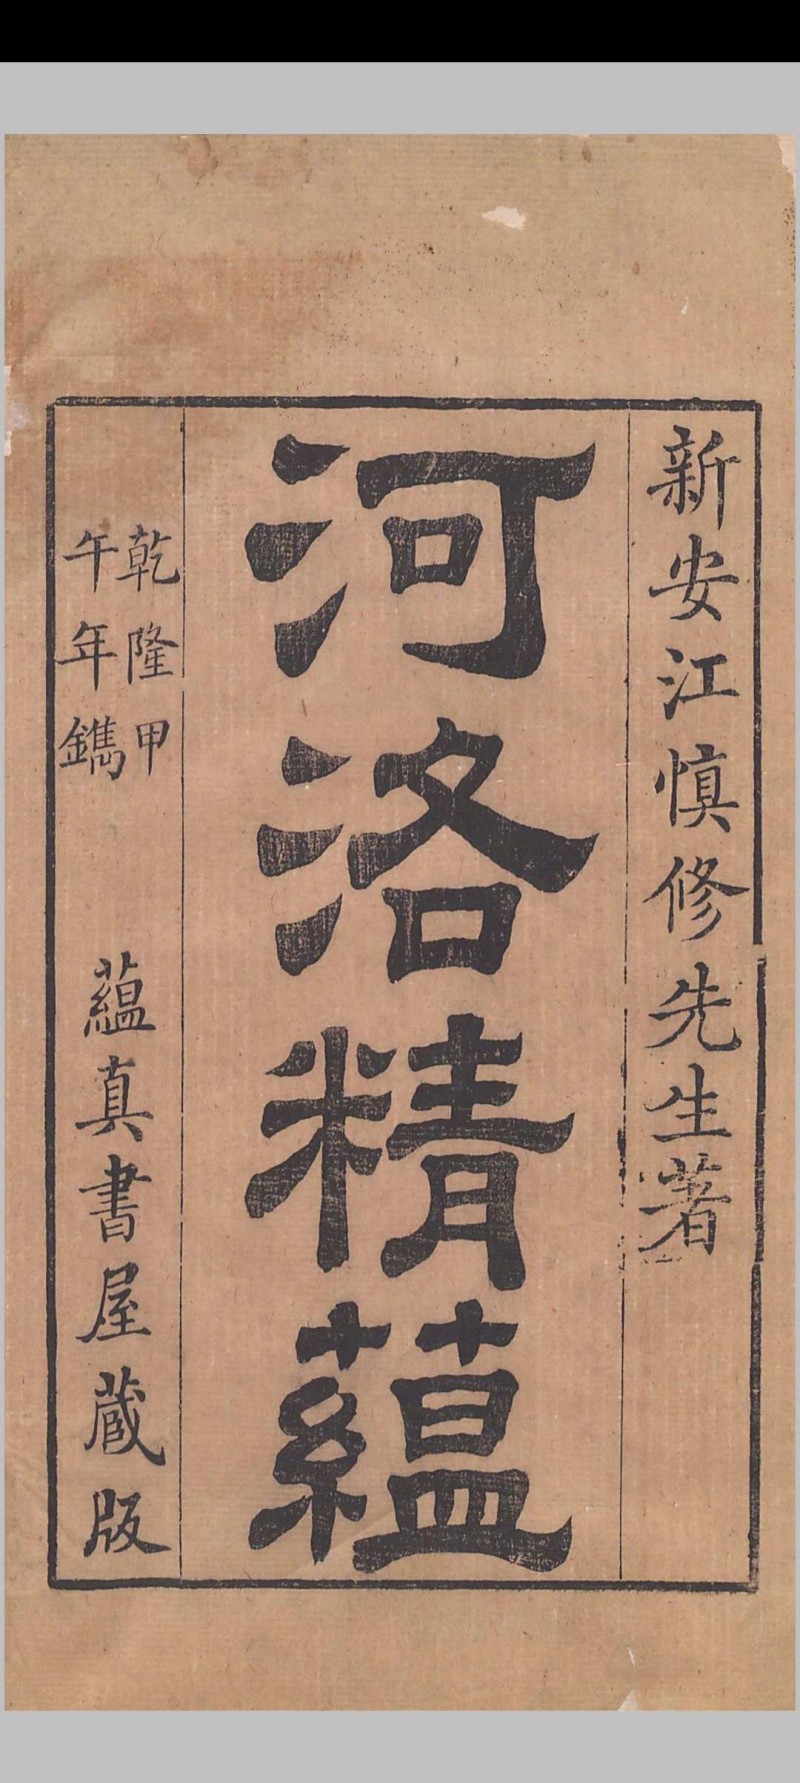 新安江慎修先生著
河洛精蘊
乾隆甲
午年鐫
蘊真書屋蔵版